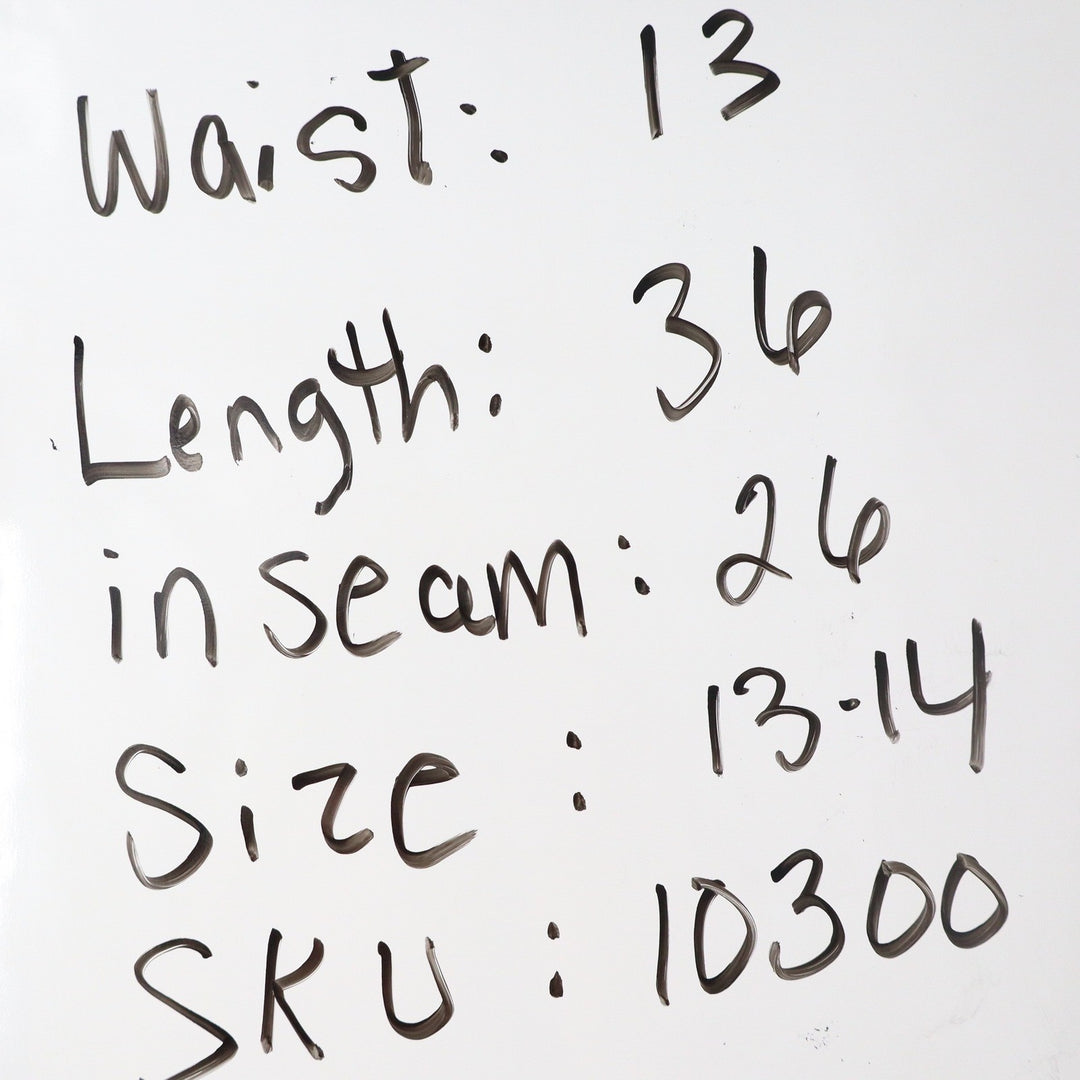 Waist: 13
Length: 36
inseam: 26
Size: 13-14
SKU: 10300